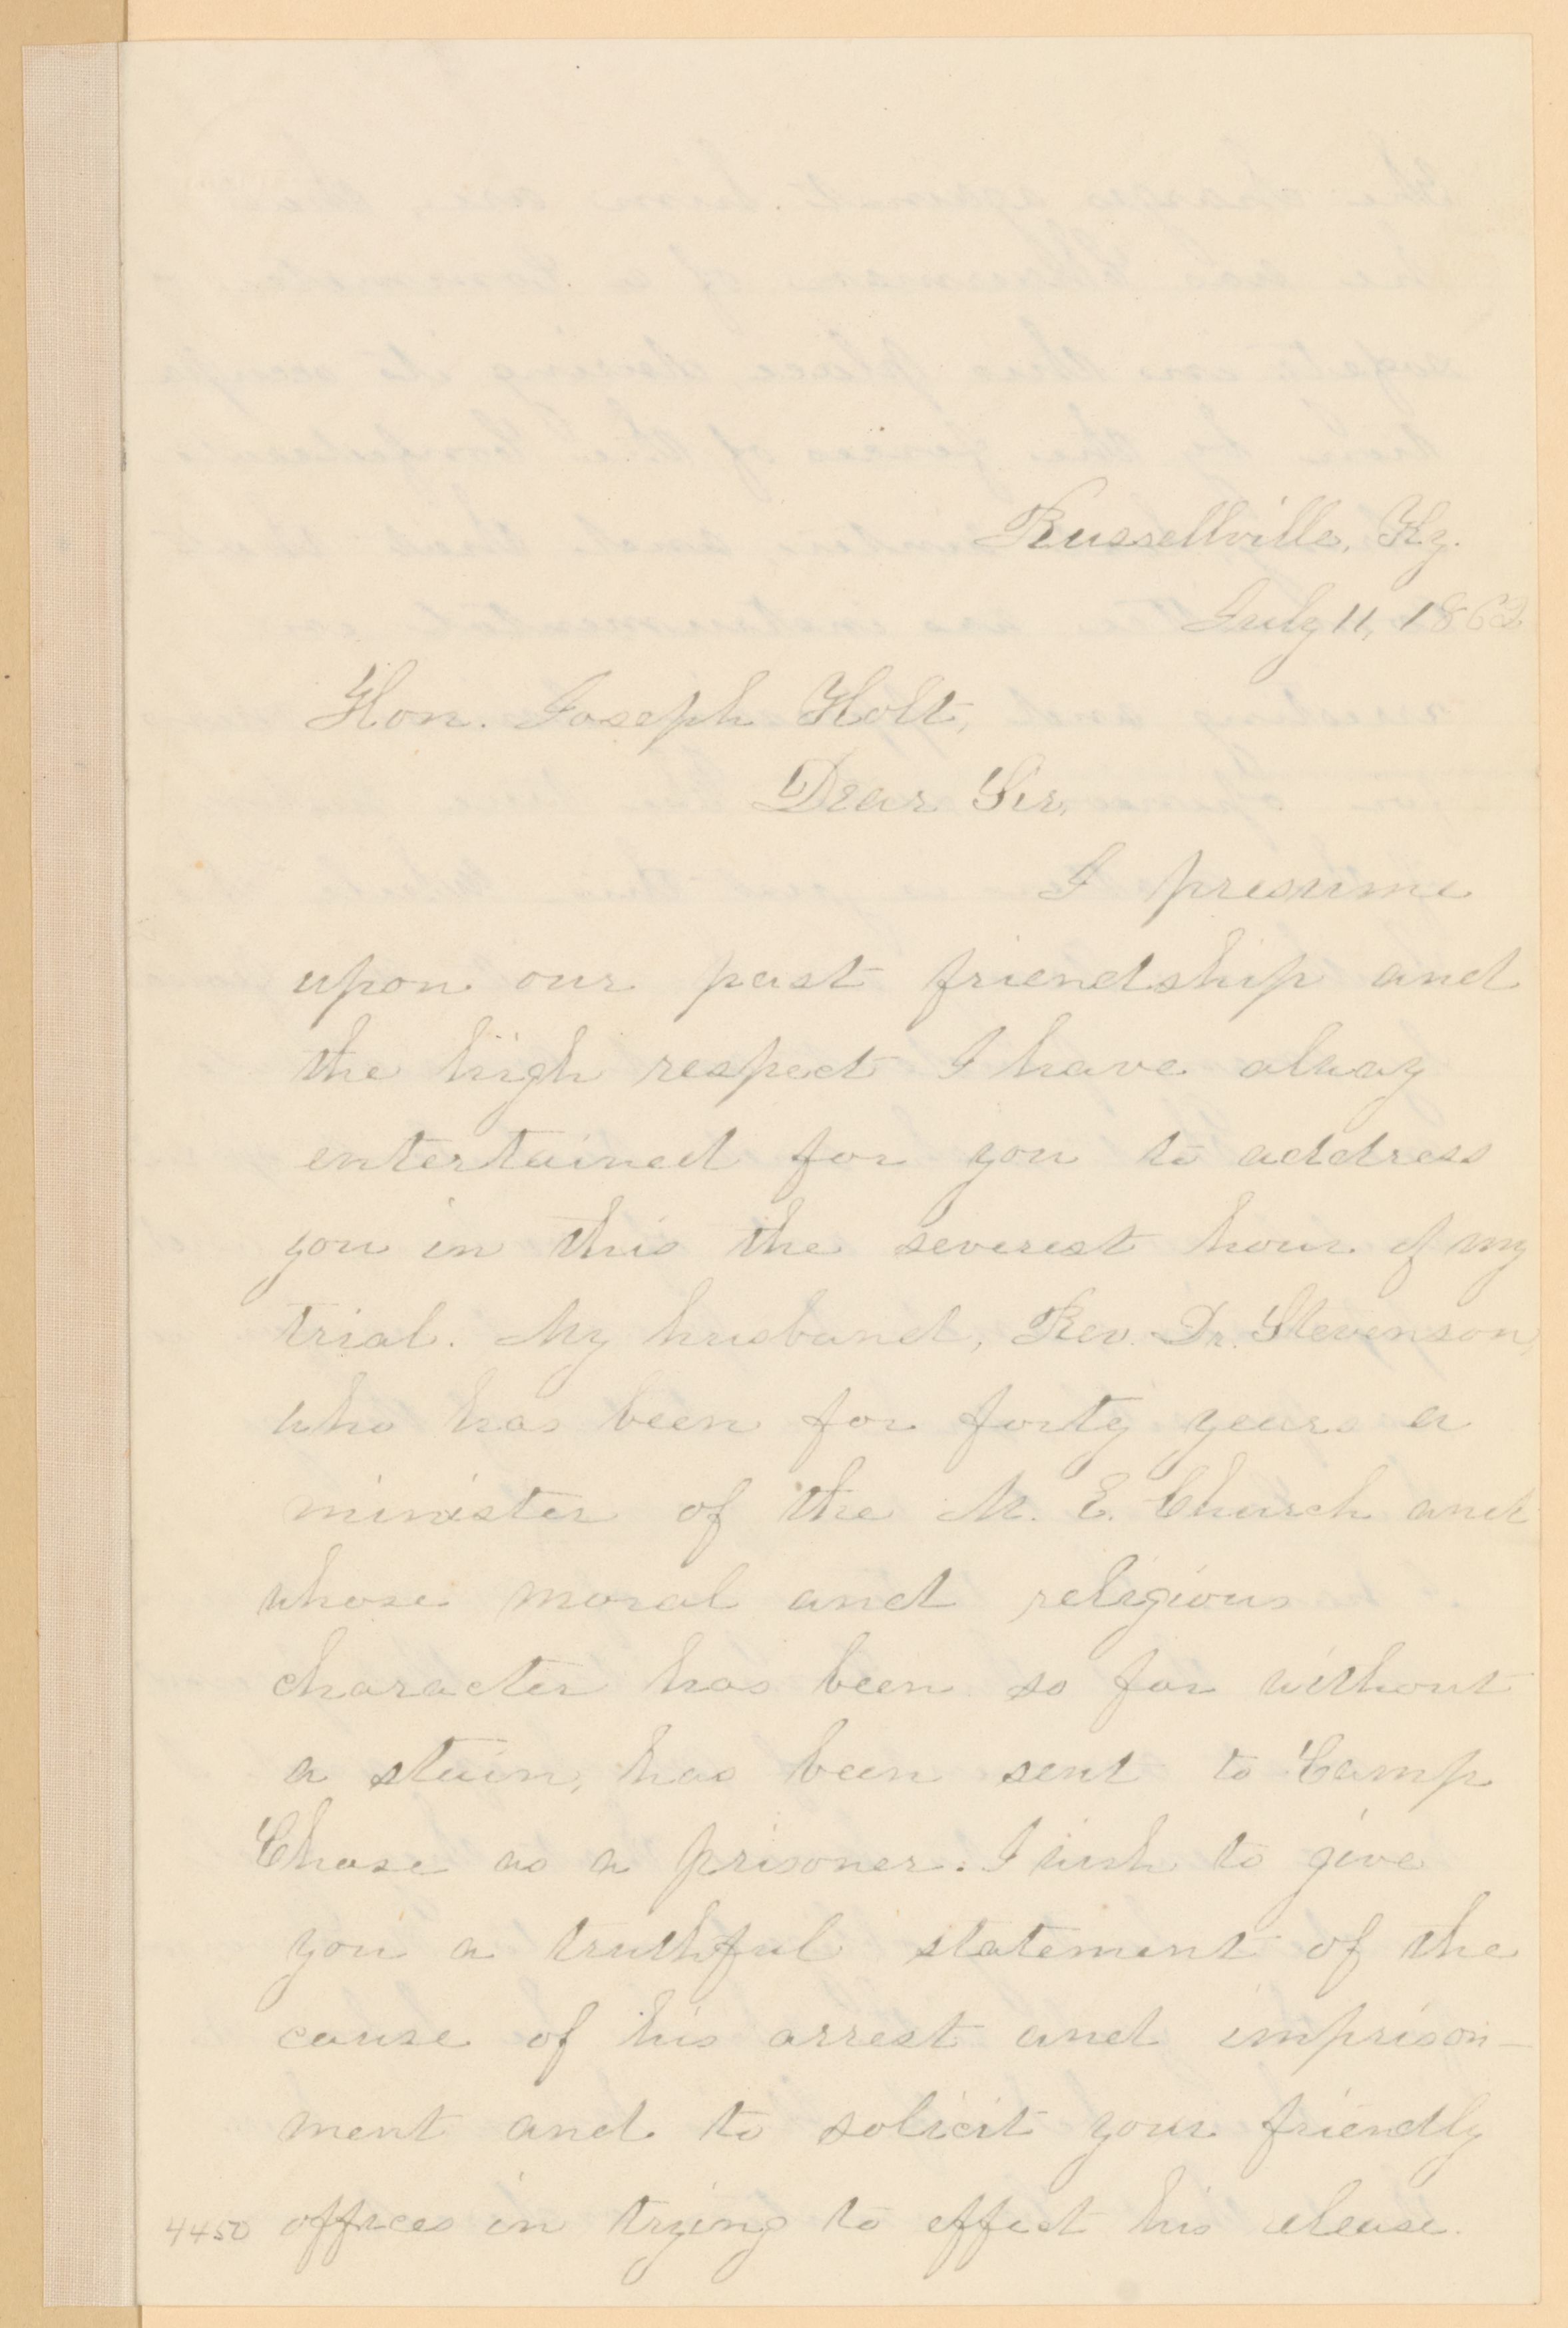 Russellville, Ky.
July 11, 1862
Hon. Joseph Holt,
Dear Sir,
I presume
upon our past friendship and
the high respect I have alway
entertained for you to address
you in this the severest hour of my
trial. My husband, Rev. Dr. Stevenson,
who has been for forty years a
minister of the M. E. Church and
whose moral and religious
character has been so far without
a stain, has been sent to Camp
Chase as a prisoner. I wish to give
you a truthful statement of the
cause of his arrest and imprison-
ment and to solicit your friendly
4450 offices in trying to effect his release.